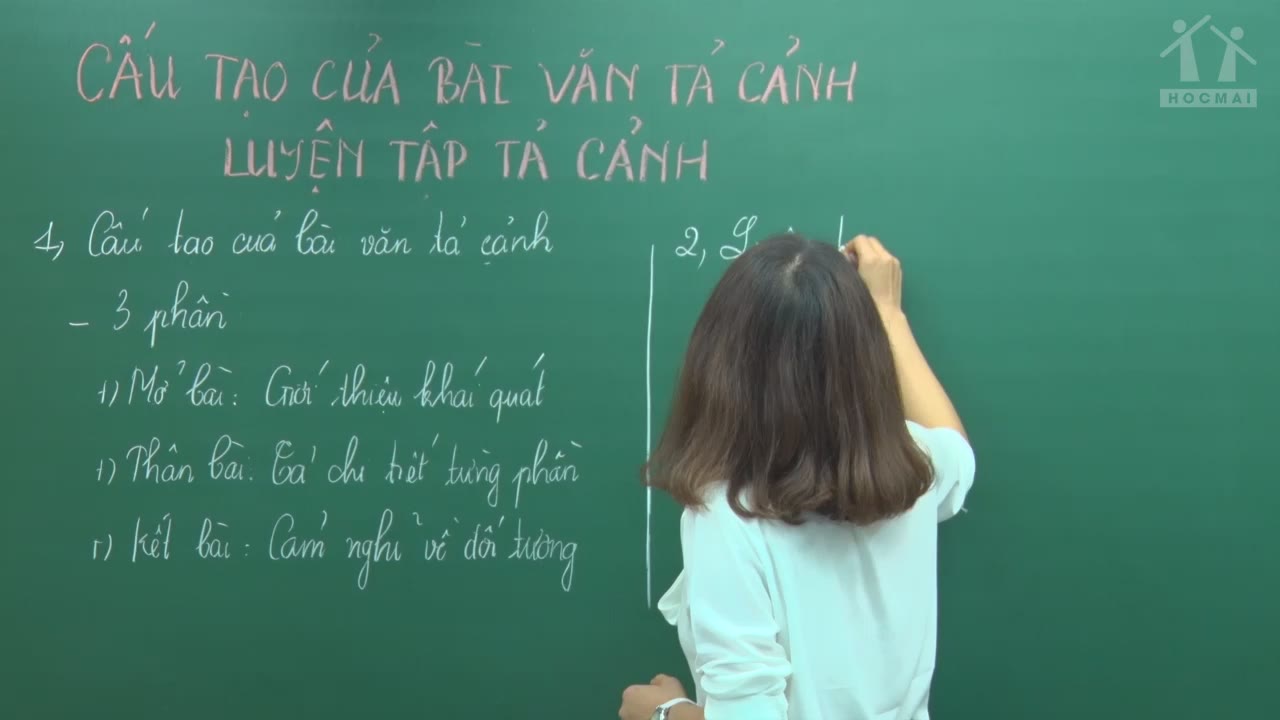 CẤU TẠO CỦA BÀI VĂN TẢ CẢNH
LUYỆN TẬP TẢ CẢNH
1, Cấu tao của bài văn tả cảnh
- 3 phần
+) Mở bài: Giới thiệu khái quát
+) Thân bài: Tả chi tiết từng phần
+) Kết bài: Cảm nghĩ về đối tường
2,
HOCMAI